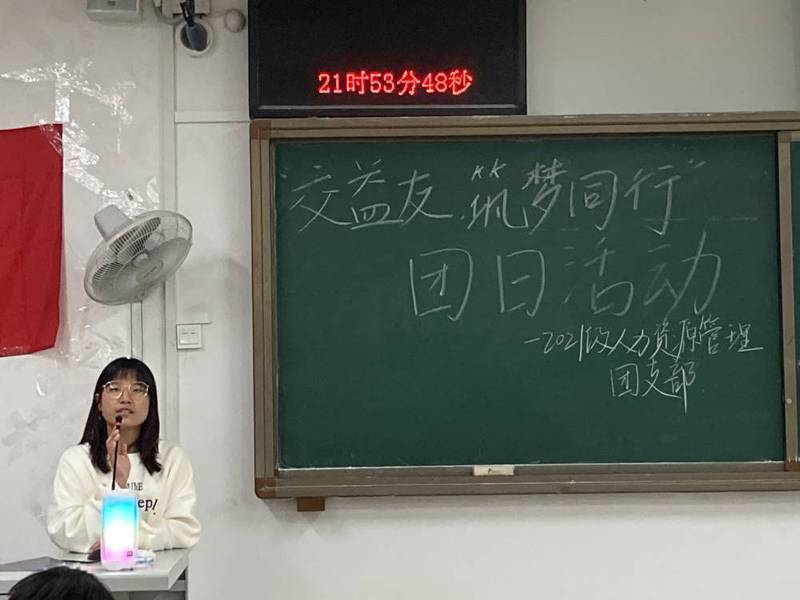 21时53分48秒
“交益友 筑梦同行”
团日活动
—2021级人力资源管理
团支部